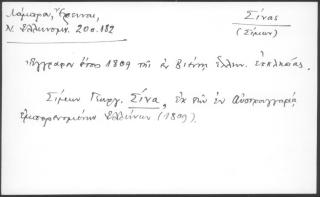 Λάμπρου, Ἔρευναι,
Ν. Ἑλληνομν. 20 σ. 182
Σίνας
(Σίμων)
Ἔγγραφον ἔτους 1809 τῆς ἐν Βιέννῃ Ἑλλην. ἐκκλησίας.
Σίμων Γεωργ. Σίνα, ἐκ τῶν ἐν Αὐστρουγγαρίᾳ
Ἑλλήνων (1809).